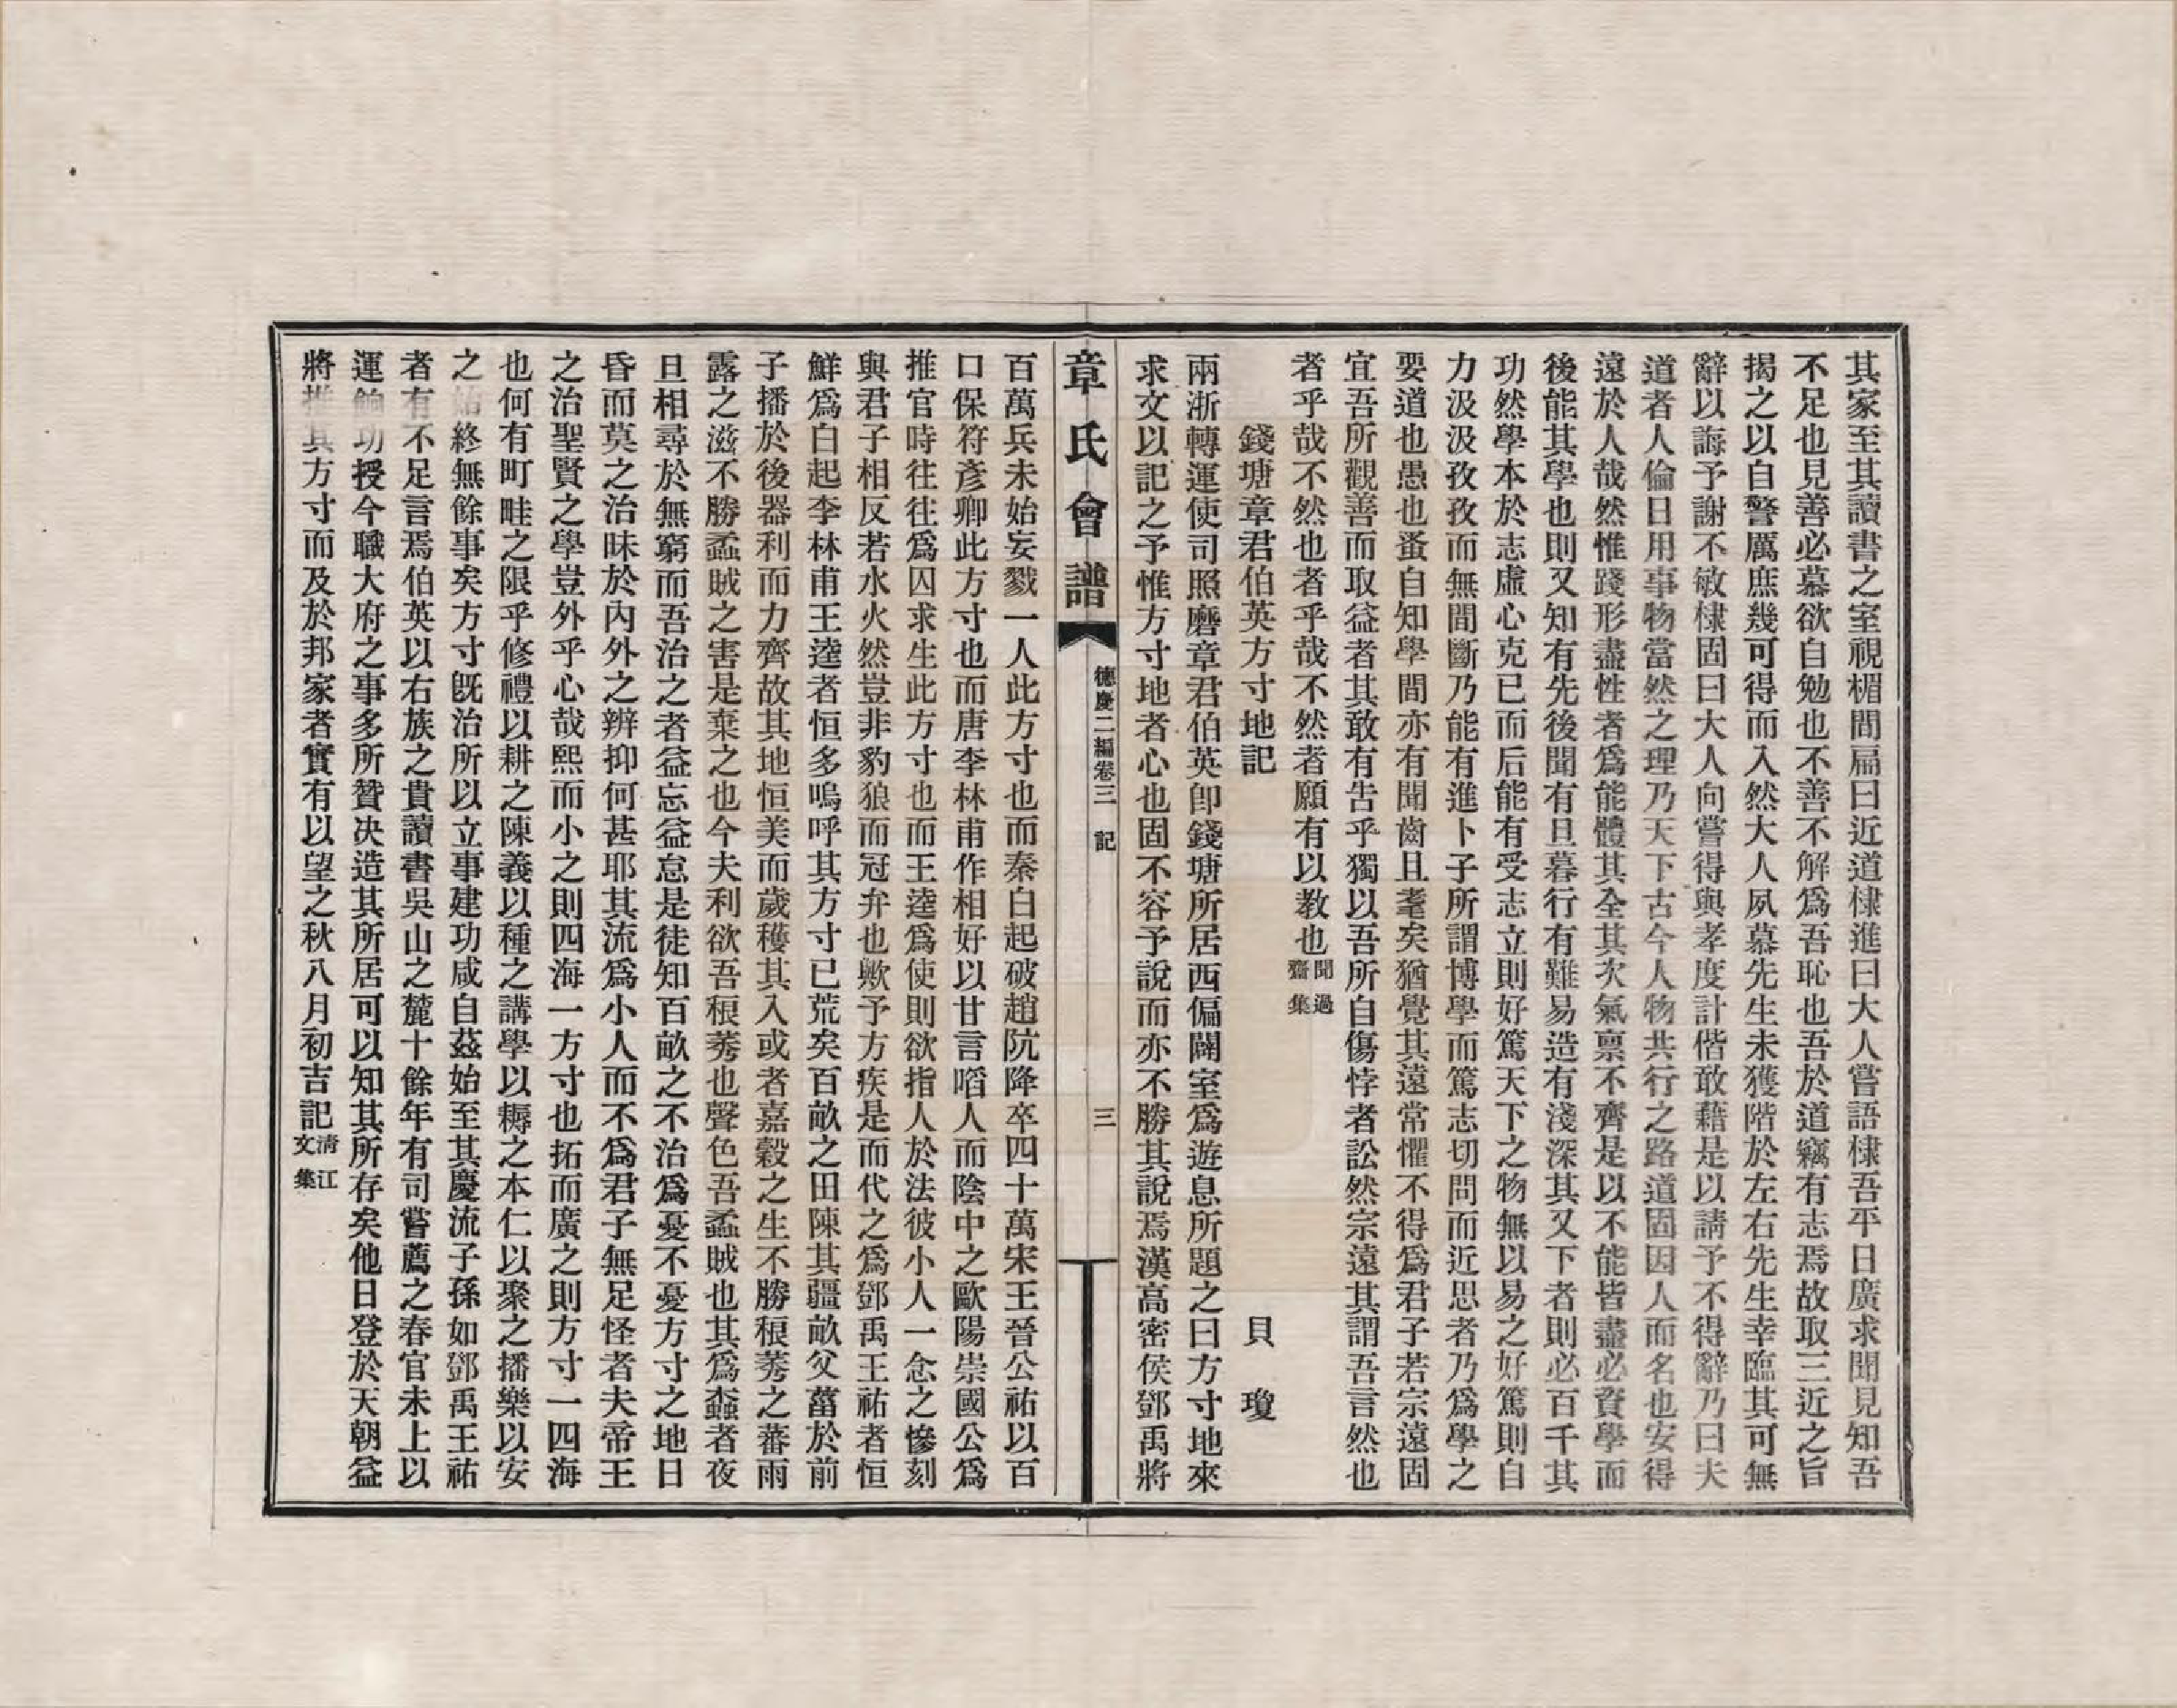 其家至其讀書之室視楣間扁曰近道棣進曰大人嘗語棣吾平日廣求聞見知吾
不足也見善必慕欲自勉也不善不解爲吾恥也吾於道竊有志焉故取三近之旨
揭之以自警厲庶幾可得而入然大人夙慕先生未獲階於左右先生幸臨其可無
辭以誨予謝不敏棣固曰大人向嘗得與孝度計偕敢藉是以請予不得辭乃曰夫
道者人倫日用事物當然之理乃天下古今人物共行之路道固因人而名也安得
遠於人哉然惟踐形盡性者爲能體其全其次氣禀不齊是以不能皆盡必資學而
後能其學也則又知有先後聞有旦暮行有難易造有淺深其又下者則必百千其
功然學本於志虛心克已而后能有受志立則好篤天下之物無以易之好篤則自
力汲汲孜孜而無間斷乃能有進卜子所謂博學而篤志切問而近思者乃爲學之
要道也愚也蚤自知學間亦有聞齒且耄矣猶覺其遠常懼不得爲君子若宗遠固
宜吾所觀善而取益者其敢有告乎獨以吾所自傷悖者訟然宗遠其謂吾言然也
者乎哉不然也者乎哉不然者願有以教也聞過齋集
錢塘章君伯英方寸地記　貝瓊
兩浙轉運使司照磨章君伯英卽錢塘所居西偏闢室爲遊息所題之曰方寸地來
求文以記之予惟方寸地者心也固不容予說而亦不勝其說焉漢高密侯鄧禹將
章氏會譜　德慶二編卷三　記　三
百萬兵未始妄戮一人此方寸也而秦白起破趙阬降卒四十萬宋王晉公祐以百
口保符彥卿此方寸也而唐李林甫作相好以甘言啗人而陰中之歐陽崇國公爲
推官時往往爲囚求生此方寸也而王逵爲使則欲指人於法彼小人一念之慘刻
與君子相反若水火然豈非豹狼而冠弁也歟予方疾是而代之爲鄧禹王祐者恒
鮮爲白起李林甫王逵者恒多嗚呼其方寸已荒矣百畝之田陳其疆畝父菑於前
子播於後器利而力齊故其地恒美而歲穫其入或者嘉穀之生不勝稂莠之蕃雨
露之滋不勝蟊賊之害是棄之也今夫利欲吾稂莠也聲色吾蟊賊也其爲螙者夜
旦相尋於無窮而吾治之者益忘益怠是徒知百畝之不治爲憂不憂方寸之地日
昏而莫之治昧於內外之辨抑何甚耶其流爲小人而不爲君子無足怪者夫帝王
之治聖賢之學豈外乎心哉熙而小之則四海一方寸也拓而廣之則方寸一四海
也何有町畦之限乎修禮以耕之陳義以種之講學以耨之本仁以聚之播樂以安
之始終無餘事矣方寸旣治所以立事建功咸自茲始至其慶流子孫如鄧禹王祐
者有不足言焉伯英以右族之貴讀書吳山之麓十餘年有司嘗薦之春官未上以
運餉功授今職大府之事多所贊决造其所居可以知其所存矣他日登於天朝益
將推其方寸而及於邦家者實有以望之秋八月初吉記清江文集